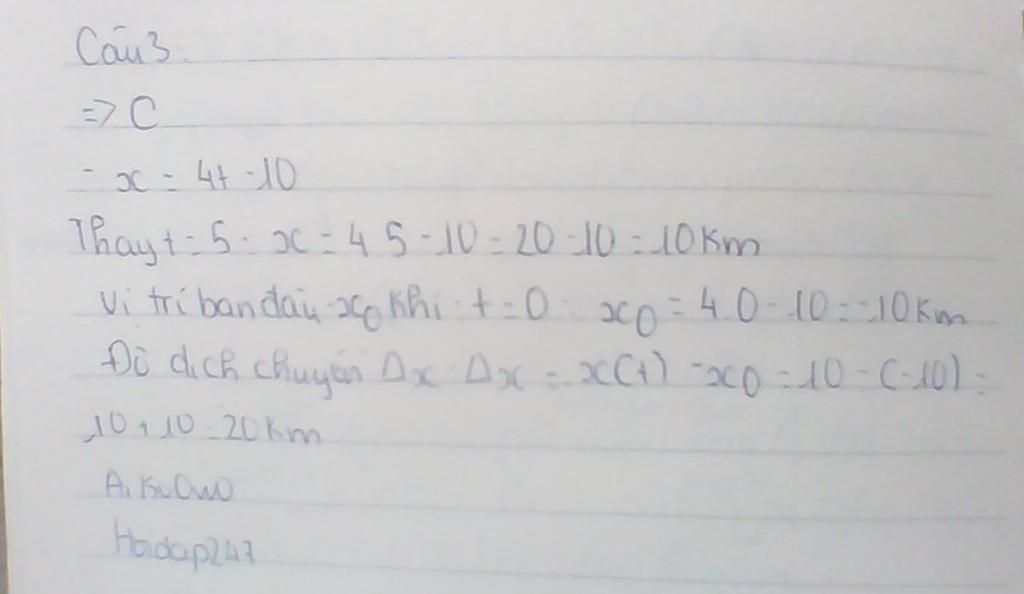 Câu 3.
=> C
- x = 4t - 10
Thay t = 5 : x = 4.5 - 10 = 20 - 10 = 10 km
Vị trí ban đầu x0 khi t = 0 : x0 = 4.0 - 10 = -10 km
Độ dịch chuyển Δx : Δx = x(t) - x0 = 10 - (-10) =
10 + 10 = 20 km
Hoidap247